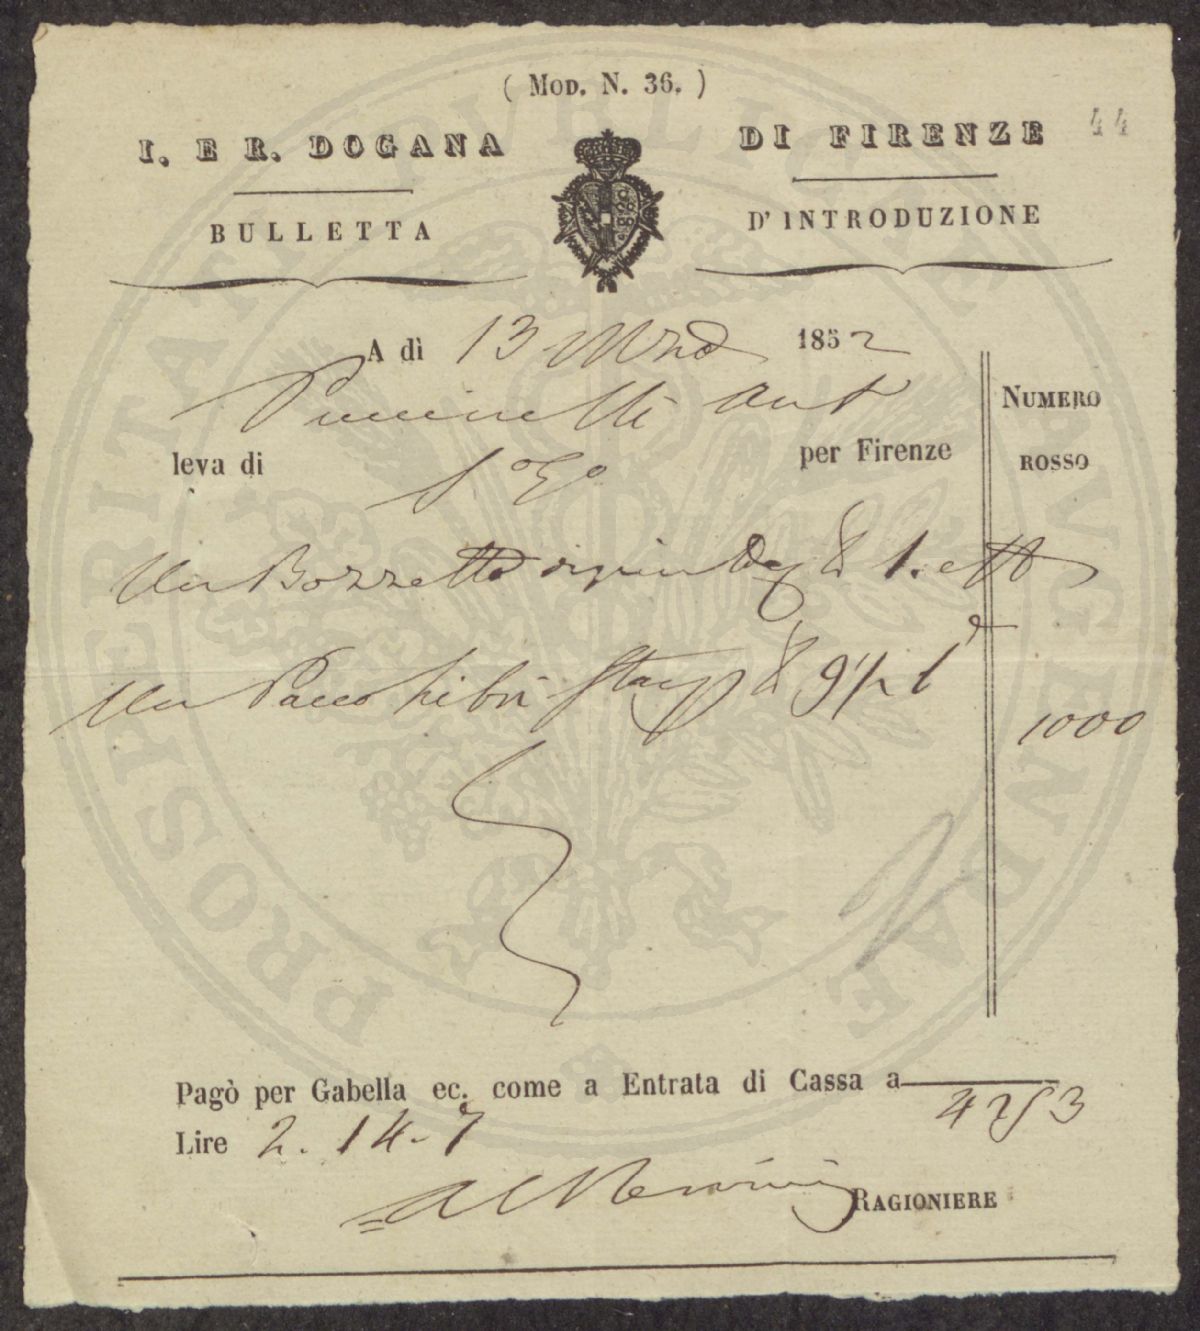 ( Mod. N. 36. )
I. E R. DOGANA DI FIRENZE
44
BULLETTA D'INTRODUZIONE
PROSPERITATI PVBLICAE AVGENDAE
A dì 13 1852
Puccinelli Ant
NUMERO
ROSSO
leva di per Firenze
Un Bozzetto 1.
Un Pacco Libri
1000
Pagò per Gabella ec. come a Entrata di Cassa a
4253
Lire 2. 14. 7
RAGIONIERE